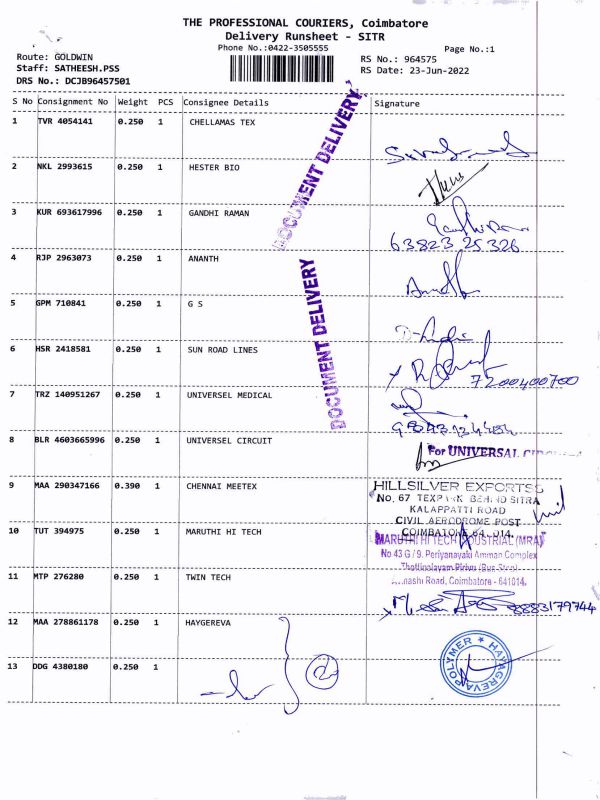 THE PROFESSIONAL COURIERS, Coimbatore
Delivery Runsheet - SITR
Phone No.:0422-3505555
Page No.:1
Route: GOLDWIN
RS No.: 964575
Staff: SATHEESH.PSS
RS Date: 23-Jun-2022
DRS No.: DCJB96457501
S No Consignment No Weight PCS Consignee Details Signature
1 TVR 4054141 0.250 1 CHELLAMAS TEX
2 NKL 2993615 0.250 1 HESTER BIO
3 KUR 693617996 0.250 1 GANDHI RAMAN
63823 25326
4 RJP 2963073 0.250 1 ANANTH
5 GPM 710841 0.250 1 G S
6 HSR 2418581 0.250 1 SUN ROAD LINES
7200400700
7 TRZ 140951267 0.250 1 UNIVERSEL MEDICAL
8 BLR 4603665996 0.250 1 UNIVERSEL CIRCUIT
For UNIVERSAL
9 MAA 290347166 0.390 1 CHENNAI MEETEX
HILLSILVER EXPORTSS
No. 67 TEXPARK BEHIND SITRA
KALAPPATTI ROAD
CIVIL AERODROME POST
COIMBATORE-641 014.
10 TUT 394975 0.250 1 MARUTHI HI TECH
MARUTHI HI TECH INDUSTRIAL (MRA)
No 43 G / 9. Periyanayaki Amman Complex
Thottipalayam Pirivu (Bus Stop)
11 MTP 276280 0.250 1 TWIN TECH
Avinashi Road, Coimbatore - 641014.
8883179744
12 MAA 278861178 0.250 1 HAYGEREVA
13 DDG 4380180 0.250 1
HAYAGREVA POLYMER
DOCUMENT DELIVERY
DOCUMENT DELIVERY